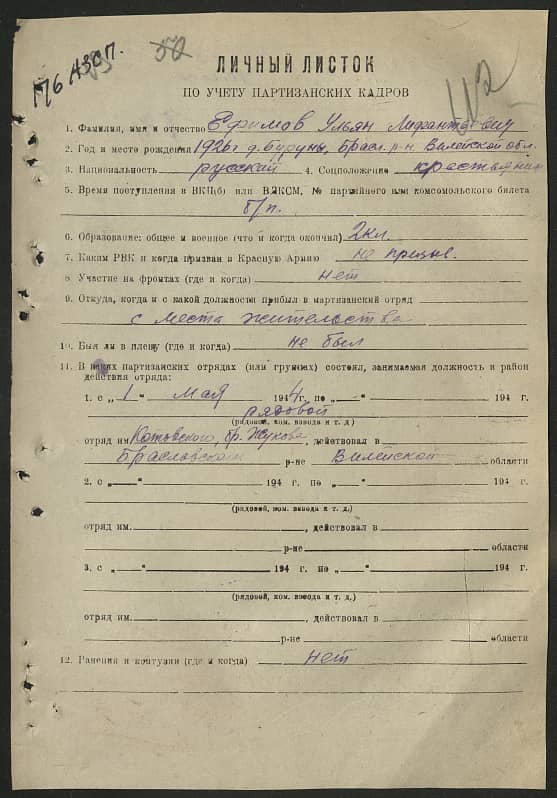 176 АЗСП.
52
412
ЛИЧНЫЙ ЛИСТОК
ПО УЧЕТУ ПАРТИЗАНСКИХ КАДРОВ
1. Фамилия, имя и отчество Ефимов Ульян
2. Год и место рождения 1926 г д. Бируны, Брасл. р-н Вилейской обл.
3. Национальность русский 4. Соцположение крестьянин
5. Время поступления в ВКП(б) или ВЛКСМ, № партийного или комсомольского билета
б/п.
6. Образование: общее и военное (что и когда окончил) 2кл.
7. Каким РВК и когда призван в Красную Армию не призыв.
8. Участие на фронтах (где и когда) нет
9. Откуда, когда и с какой должности прибыл в партизанский отряд
с места жительства
10. Был ли в плену (где и когда) не был
11. В каких партизанских отрядах (или группах) состоял, занимаемая должность и район
действия отряда:
1. с „ 1 " мая 1944 г. по „ — " 194 г.
рядовой
(рядовой, ком. взвода и т. д.)
отряд им. Котовского, бр. Жукова, действовал в
Браславском р-не Вилейской области
2. с „ — " 194 г. по „ — " 194 г.
(рядовой, ком. взвода и т. д.)
отряд им. , действовал в
р-не области
3. с „ — " 194 г. по „ — " 194 г.
(рядовой, ком. взвода и т. д.)
отряд им. , действовал в
р-не области
12. Ранения и контузии (где и когда) нет